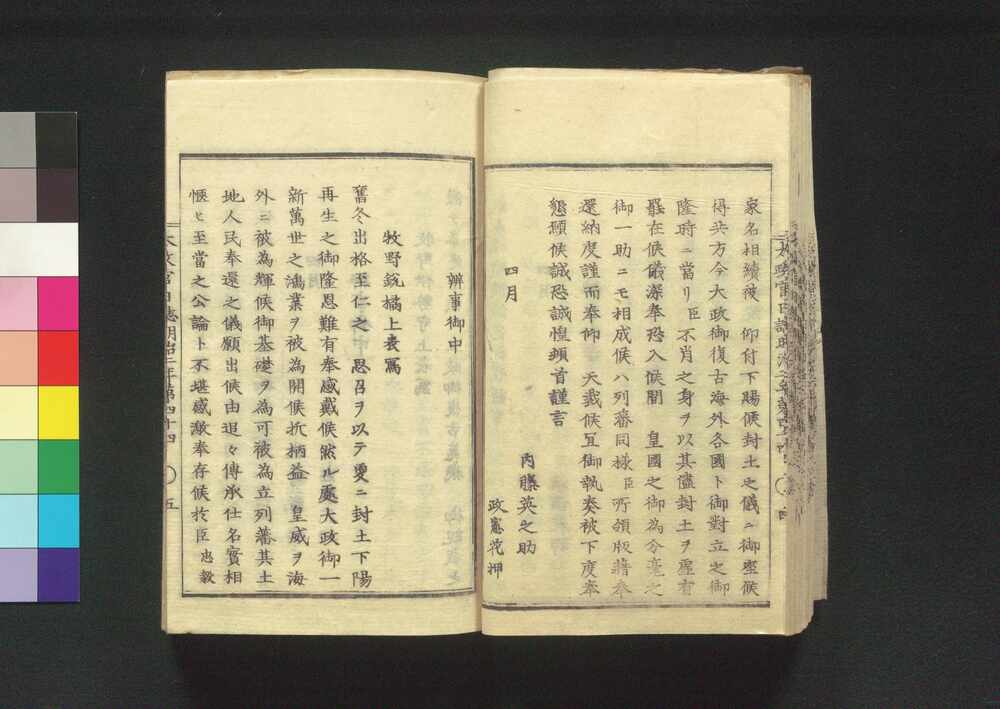 家名相續被　仰付下賜候封土之儀ニ御座候
得共方今大政御復古海外各國ト御對立之御
隆時ニ當リ臣不肖之身ヲ以其儘封土ヲ虚有
罷在候儀深奉恐入候間　皇國之御為分毫之
御一助ニモ相成候ハ列藩同様臣所領版籍奉
還納度謹而奉仰　天裁候宜御執奏被下度奉
懇願候誠恐誠惶頓首謹言
四月
内藤英之助
政憲花押
辨事御中
牧野鋭橘上表寫
舊冬出格至仁之　思召ヲ以テ更ニ封土下賜
再生之御隆恩難有奉感戴候然ル處大政御一
新萬世之鴻業ヲ被為開候折柄益　皇威ヲ海
外ニ被為輝候御基礎ヲ為可被為立列藩其土
地人民奉還之儀願出候由追々傳承仕名實相
愜ヒ至當之公論ト不堪感激奉存候於臣忠毅
太政官日誌明治二年第四十四　〇　五